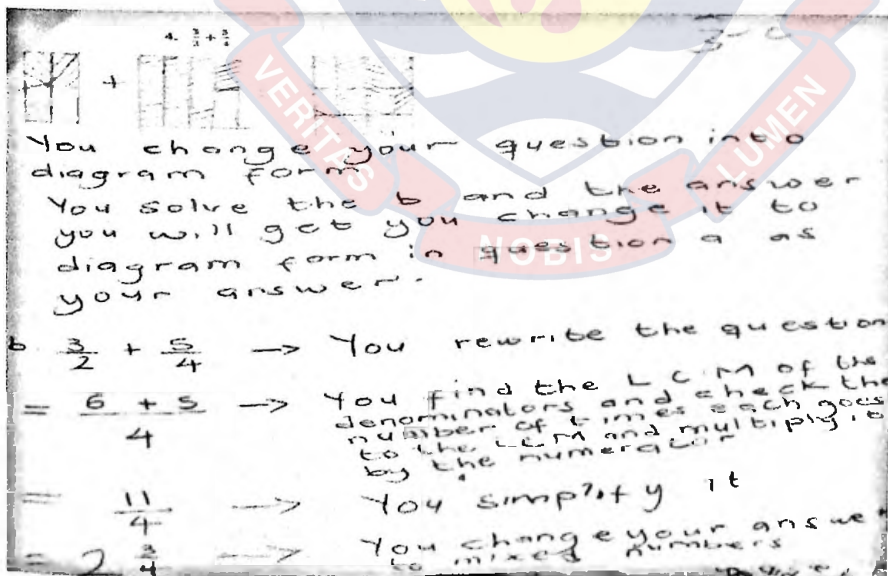 4.
+
You change your question into
diagram form
You solve the b and the answer
you will get you change it to
diagram form in question a as
your answer.
b 3/2 + 5/4 → You rewrite the question
= 6 + 5 / 4 → You find the L C M of the
denominators and check the
number of times each goes
to the LCM and multiply it
by the numerator
= 11/4 → You simplify it
= 2 3/4 → You change your answer
to mixed numbers
VERITAS
NOBIS
LUMEN